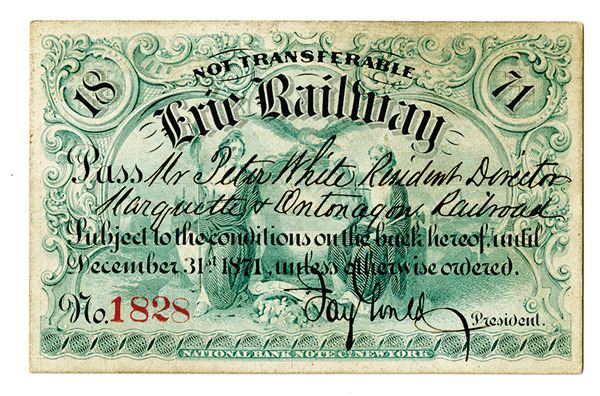 NOT TRANSFERABLE
18 71
Erie Railway
Pass Mr Peter White Resident Director
Marquette & Ontonagon Railroad
Subject to the conditions on the back hereof, until
December 31st 1871, unless otherwise ordered.
No. 1828 Jay Gould President.
NATIONAL BANK NOTE CO. NEW YORK